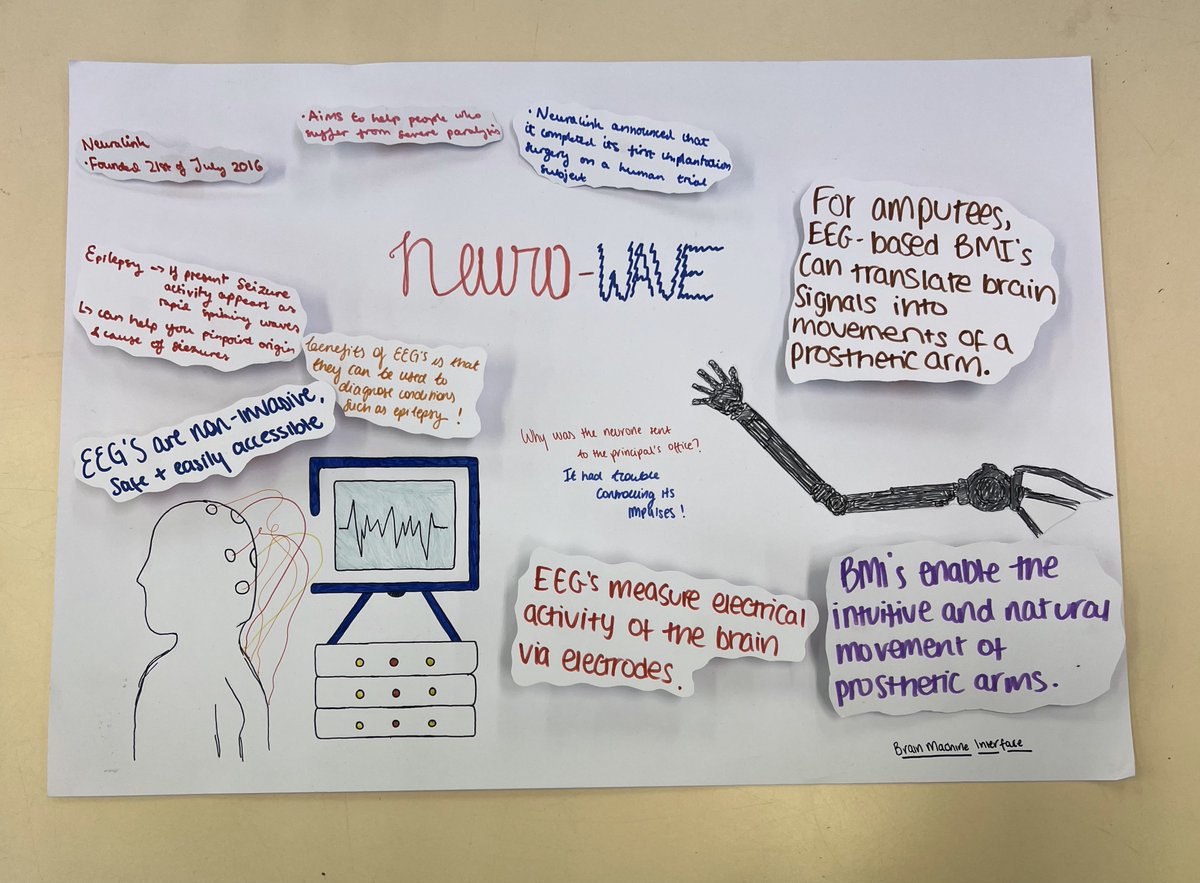 Neuralink
• Founded 21st of July 2016
• Aims to help people who
suffer from severe paralysis
• Neuralink announced that
it completed its first implantation
surgery on a human trial
subject
neuro-WAVE
For amputees,
EEG-based BMI's
can translate brain
signals into
movements of a
prosthetic arm.
Epilepsy → If present seizure
activity appears as
rapid spiking waves
↳ can help you pinpoint origin
& cause of siezures
benefits of EEG's is that
they can be used to
diagnose conditions
such as epilepsy!
EEG'S are non-invasive,
safe + easily accessible
Why was the neurone sent
to the principal's office?
It had trouble
controlling its
impulses!
EEG's measure electrical
activity of the brain
via electrodes.
BMI's enable the
intuitive and natural
movement of
prosthetic arms.
Brain Machine Interface